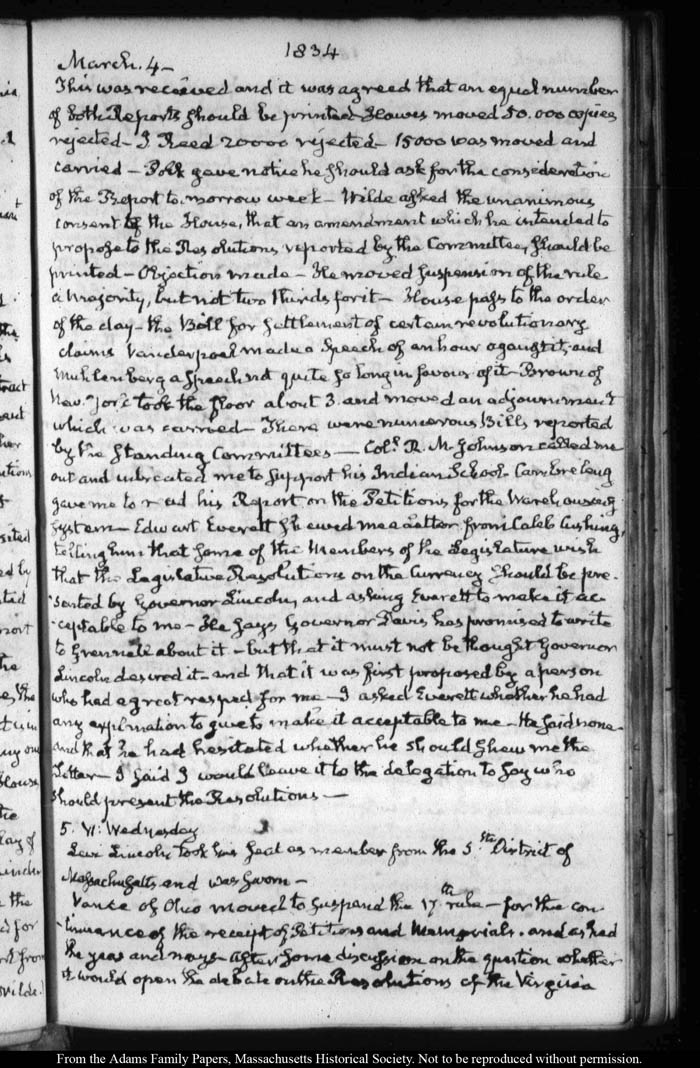 1834
March. 4 –
This was received and it was agreed that an equal number
of both Reports should be printed Hawes moved 50.000 copies
rejected – J Reed 20000 rejected – 15000 was moved and
carried – Polk gave notice he should ask for the consideration
of the Report to morrow week – Wilde asked the unanimous
consent of the House, that an amendment which he intended to
propose to the Resolutions reported by the Committee, should be
printed – Objection made – He moved suspension of the rule
a majority, but not two thirds for it – House pass to the order
of the day – the Bill for settlement of certain revolutionary
claims Vanderpoel made a Speech of an hour against it, and
Muhlenberg a speech not quite so long in favour of it – Brown of
New-York took the floor about 3. and moved an adjournment
which was carried – There were numerous Bills reported
by the Standing Committees – Coll. R. M. Johnson called me
out and me to support his Indian School. Cambreleng
gave me to read his Report on the Petitions for the Warehousing
System – Edward Everett shewed me a letter from Caleb Cushing,
telling him that some of the Members of the Legislature wish
that the Legislative Resolutions on the Currency should be pre-
-sented by Governor Lincoln, and asking Everett to make it ac-
-ceptable to me – He says Governor Davis has promised to write
to Grennell about it – but that it must not be thought Governor
Lincoln desired it – and that it was first proposed by a person
who had a great respect for me – I asked Everett whether he had
any explanation to give to make it acceptable to me – He said none –
and that he had hesitated whether he should shew me the
Letter – I said I would leave it to the delegation to say who
should present the Resolutions –
5. VI: Wednesday
Levi Lincoln took his seat as member from the 5.th District of
Massachusetts, and was sworn –
Vance of Ohio moved to suspend the 17th rule – for the con-
-tinuance of the receipt of Petitions and Memorials. and asked
the yeas and nays – after some discussion on the question whether
it would open the debate on the Resolutions of the Virginia
From the Adams Family Papers, Massachusetts Historical Society. Not to be reproduced without permission.